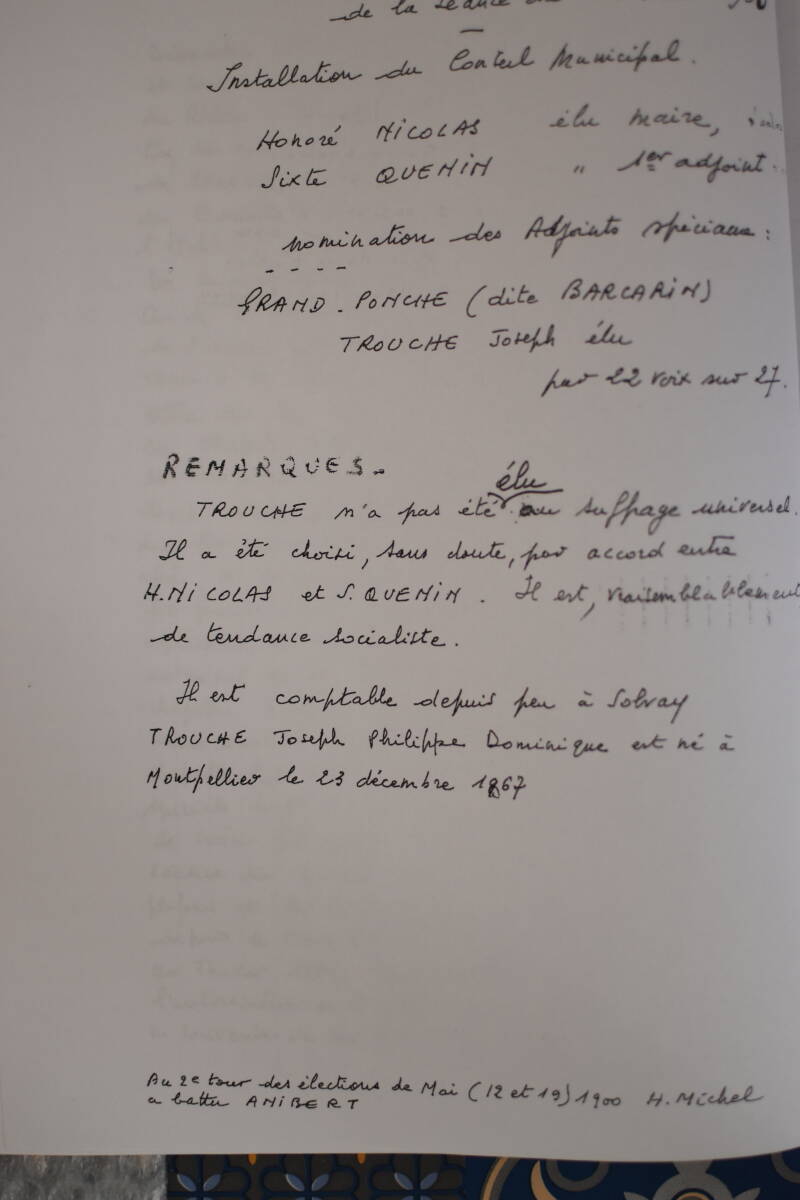 de la séance du
Installation du Conseil Municipal.
Honoré NICOLAS élu Maire,
Sixte QUENIN " 1er adjoint.
nomination des Adjoints spéciaux :
GRAND-PONCHE (dite BARCARIN)
TROUCHE Joseph élu
par 22 voix sur 27.
REMARQUES.
élu
TROUCHE n'a pas été au suffrage universel.
Il a été choisi, sans doute, par accord entre
H. NICOLAS et S. QUENIN. Il est, vraisemblablement
de tendance socialiste.
Il est comptable depuis peu à Solvay
TROUCHE Joseph Philippe Dominique est né à
Montpellier le 23 décembre 1867
Au 2e tour des élections de Mai (12 et 19) 1900 H. Michel
a battu ANIBERT